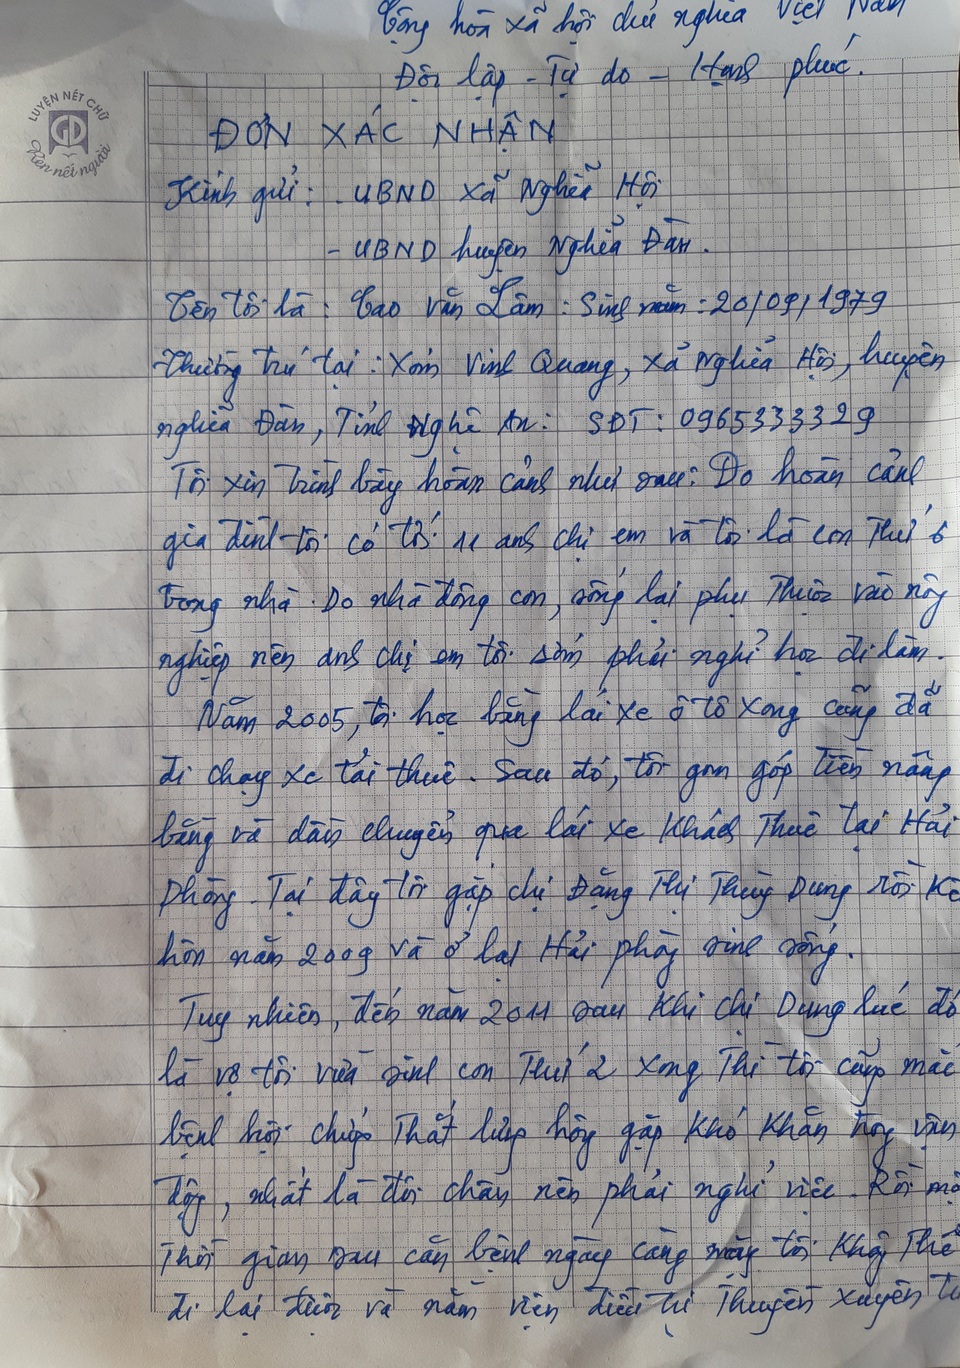 Cộng hòa xã hội chủ nghĩa Việt Nam
Độc lập - Tự do - Hạnh phúc.
LUYỆN NÉT CHỮ
GD
Rèn nết người
ĐƠN XÁC NHẬN
Kính gửi: - UBND xã Nghĩa Hội
- UBND huyện Nghĩa Đàn.
Tên tôi là: Cao Văn Lâm: Sinh năm: 20/09/1979
Thường trú tại: Xóm Vinh Quang, xã Nghĩa Hội, huyện
nghĩa Đàn, Tỉnh Nghệ An: SĐT: 0965333329
Tôi xin trình bày hoàn cảnh như sau: Do hoàn cảnh
gia đình tôi có tới 11 anh chị em và tôi là con thứ 6
trong nhà. Do nhà đông con, sống lại phụ thuộc vào nông
nghiệp nên anh chị em tôi sớm phải nghỉ học đi làm.
Năm 2005, tôi học bằng lái xe ô tô xong cũng đã
đi chạy xe tải thuê. Sau đó, tôi gom góp tiền nâng
bằng và dần chuyển qua lái xe khách thuê tại Hải
Phòng. Tại đây tôi gặp chị Đặng Thị Thùy Dung rồi kế
hôn năm 2009 và ở lại Hải phòng sinh sống.
Tuy nhiên, đến năm 2011 sau khi chị Dung lúc đó
là vợ tôi vừa sinh con thứ 2 xong thì tôi cũng mắc
bệnh hội chứng thắt lưng hông gặp khó khăn trong vận
động, nhất là đôi chân nên phải nghỉ việc. Rồi mộ
thời gian sau căn bệnh ngày càng nặng tôi không thể
đi lại được và nằm viện điều trị thường xuyên từ